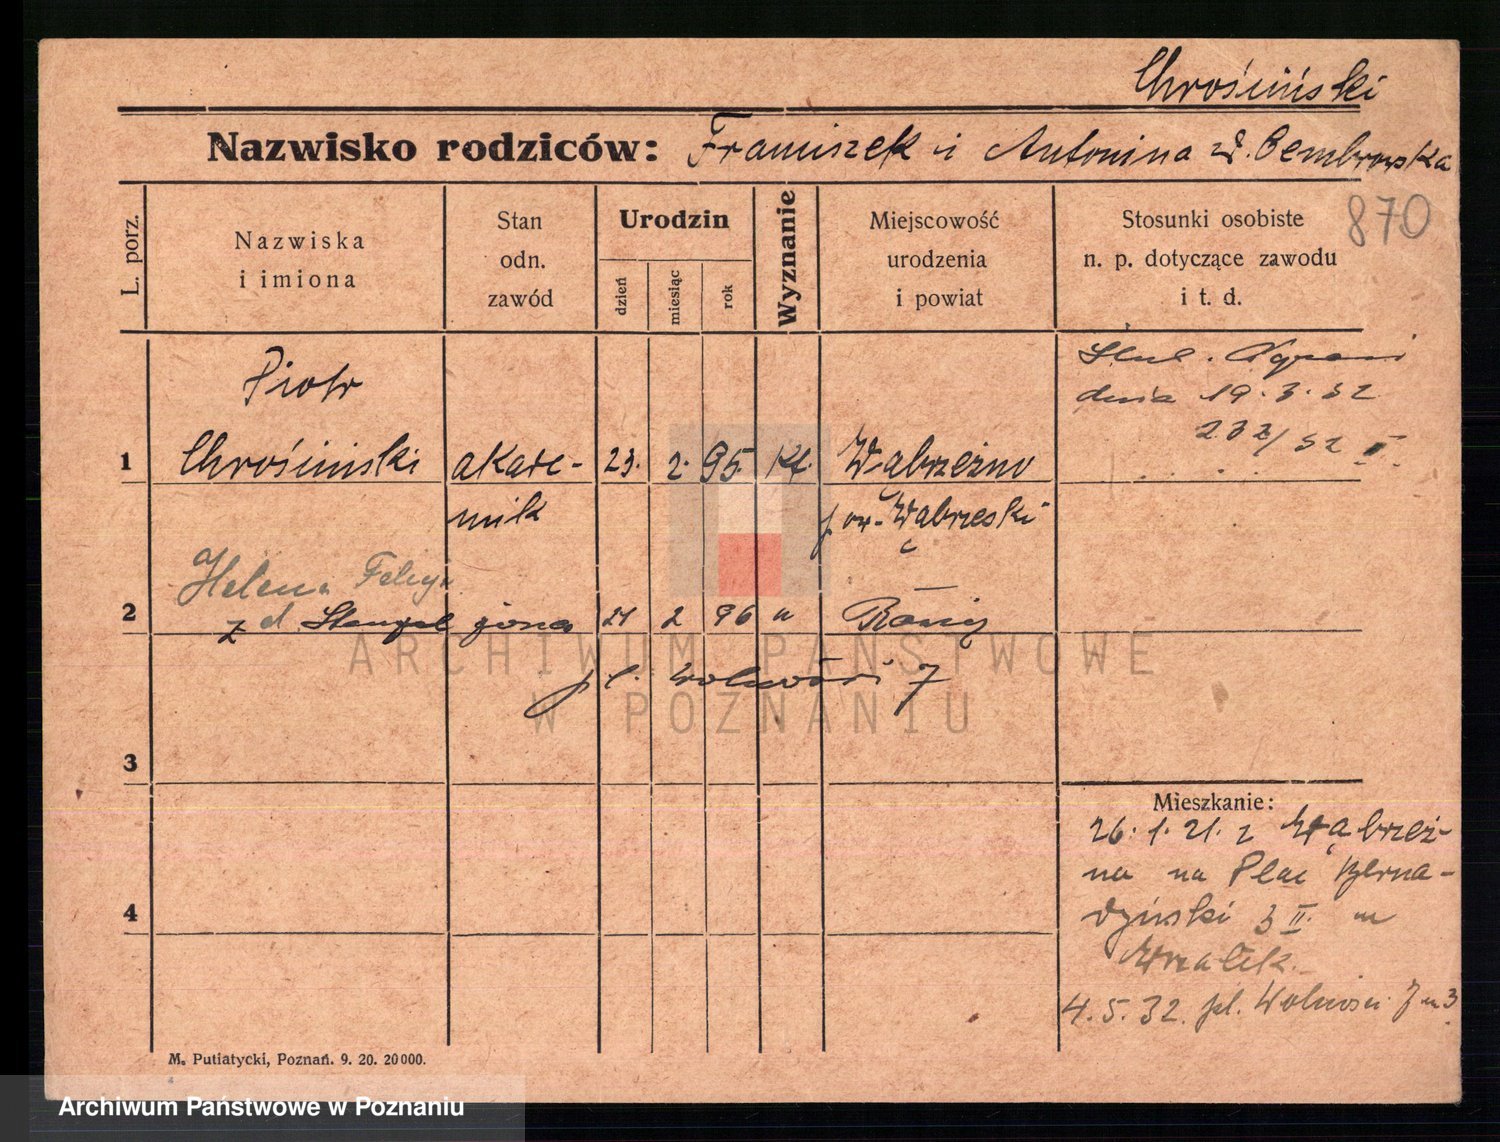 Chrościński
Nazwisko rodziców: Franciszek i Antonina z d. Dembrowska
870
L. porz.
Nazwiska
i imiona
Stan
odn.
zawód
Urodzin
dzień
miesiąc
rok
Wyznanie
Miejscowość
urodzenia
i powiat
Stosunki osobiste
n. p. dotyczące zawodu
i t. d.
dnia 19.3.32
232/32 II
Piotr
1 Chrościński akade- 23. 2. 95 kt. Wąbrzeźno
mik pow. Wąbrzeski
Helena Felicja
2 z d. Stengel żona 21 2 96 "
pl. Wolności 7
3
Mieszkanie:
26.1.21. z Wąbrzeź-
na na Plac Berna-
dyński 3 II. u
4
4.5.32. pl. Wolności 7 m 3
M. Putiatycki, Poznań. 9. 20. 20000.
ARCHIWUM PAŃSTWOWE
W POZNANIU
Archiwum Państwowe w Poznaniu